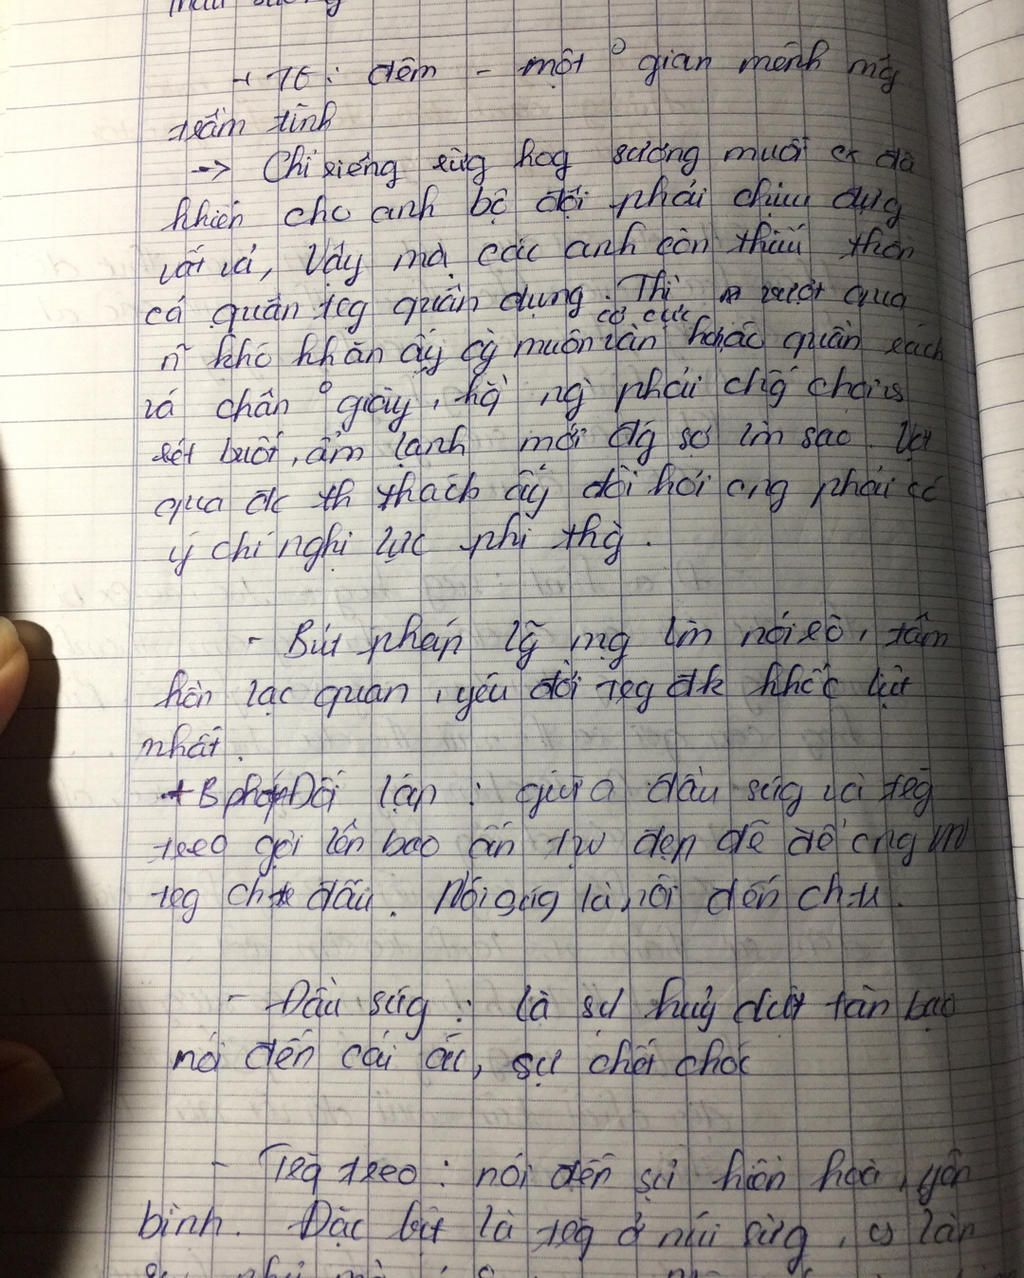 + TG : đêm - một ° gian mênh mg
trầm tĩnh
-> Chỉ riêng rừg hog sương muối cx đã
khiến cho anh bộ đội phải chịu đựg
vất vả, Vậy mà các anh còn thiếu thốn
cả quân trg quân dụng. Thì vượt qua
n~ khó khăn cơ cực ấy cg muôn vàn hoặc quần rách
vá chân ° giày, hg` ng` phải chg' chọi vs
rét buốt, ẩm lạnh mới đg sợ lm sao. Vượt
qua đc th thách ấy đòi hỏi ang phải có
ý chí nghị lực phi thg`.
- Bút pháp lg~ mg lm nói rõ, tâm
hồn lạc quan, yêu đời trg đk khốc liệt
nhất.
+ B pháp Đối lập : giữa đầu súg và trăg
treo gợi lên bao ấn tự đẹp đẽ để ang
trg ch đấu. Nói súg là nói đến ch tr.
- Đầu súg : là sự huỷ diệt tàn bạo
nói đến cái ác, sự chết chóc
- Trăg treo : nói đến sự hiền hoà, yên
bình. Đặc biệt là trăg ở núi rừg, cs làn